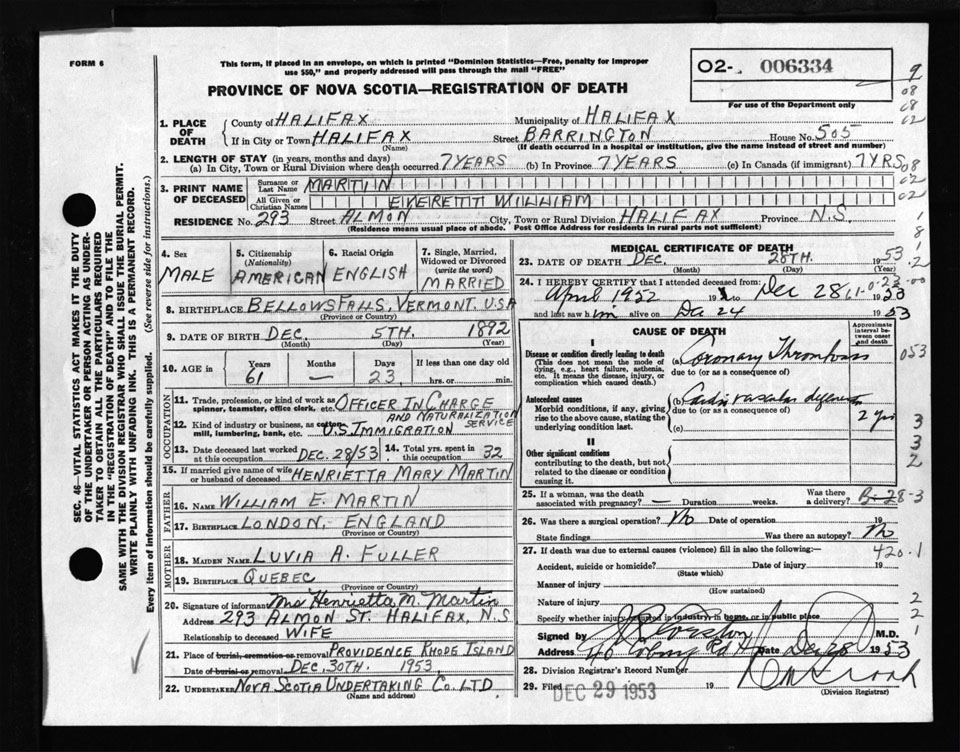 FORM 6
This form, if placed in an envelope, on which is printed "Dominion Statistics—Free, penalty for improper
use $50," and properly addressed will pass through the mail "FREE"
O2- 006334
For use of the Department only
PROVINCE OF NOVA SCOTIA—REGISTRATION OF DEATH
1. PLACE OF DEATH
County of HALIFAX Municipality of HALIFAX
If in City or Town HALIFAX Street BARRINGTON House No. 505
(Name) (If death occurred in a hospital or institution, give the name instead of street and number)
2. LENGTH OF STAY (in years, months and days)
(a) In City, Town or Rural Division where death occurred 7 YEARS (b) In Province 7 YEARS (c) In Canada (if immigrant) 7 YRS
3. PRINT NAME OF DECEASED
Surname or Last Name MARTIN
All Given or Christian Names EVERETT WILLIAM
RESIDENCE No. 293 Street ALMON City, Town or Rural Division HALIFAX Province N.S.
(Residence means usual place of abode. Post Office Address for residents in rural parts not sufficient)
4. Sex MALE
5. Citizenship (Nationality) AMERICAN
6. Racial Origin ENGLISH
7. Single, Married, Widowed or Divorced (write the word) MARRIED
8. BIRTHPLACE BELLOWS FALLS, VERMONT. U.S.A
(Province or Country)
9. DATE OF BIRTH DEC. 5TH. 1892
(Month) (Day) (Year)
10. AGE in Years 61 Months — Days 23 If less than one day old
hrs. or min.
OCCUPATION
11. Trade, profession, or kind of work as spinner, teamster, office clerk, etc. OFFICER IN CHARGE
12. Kind of industry or business, as cotton mill, lumbering, bank, etc. U.S. IMMIGRATION AND NATURALIZATION SERVICE
13. Date deceased last worked at this occupation DEC. 28/53
14. Total yrs. spent in this occupation 32
15. If married give name of wife or husband of deceased HENRIETTA MARY MARTIN
FATHER
16. NAME WILLIAM E. MARTIN
17. BIRTHPLACE LONDON, ENGLAND
(Province or Country)
MOTHER
18. MAIDEN NAME LUVIA A. FULLER
19. BIRTHPLACE QUEBEC
(Province or Country)
20. Signature of informant Mrs Henrietta M. Martin
Address 293 ALMON ST. HALIFAX, N.S
Relationship to deceased WIFE
21. Place of burial, cremation or removal PROVIDENCE RHODE ISLAND
Date of burial or removal DEC. 30TH. 1953
22. UNDERTAKER NOVA SCOTIA UNDERTAKING CO. LTD.
(Name and address)
MEDICAL CERTIFICATE OF DEATH
23. DATE OF DEATH DEC. 28TH. 1953
(Month) (Day) (Year)
24. I HEREBY CERTIFY that I attended deceased from:
April 1952 19 to Dec 28 1953
and last saw him alive on Dec 24 1953
CAUSE OF DEATH
Approximate interval between onset and death
I
Disease or condition directly leading to death
(This does not mean the mode of dying, e.g., heart failure, asthenia, etc. It means the disease, injury, or complication which caused death.)
(a) Coronary Thrombosis
due to (or as a consequence of)
Antecedent causes
Morbid conditions, if any, giving rise to the above cause, stating the underlying condition last.
(b) Cardio vascular
due to (or as a consequence of) 2 yrs
(c)
II
Other significant conditions
contributing to the death, but not related to the disease or condition causing it.
25. If a woman, was the death associated with pregnancy? — Duration weeks. Was there a delivery?
26. Was there a surgical operation? No Date of operation 19
State findings Was there an autopsy? No
27. If death was due to external causes (violence) fill in also the following:—
420.1
Accident, suicide or homicide? Date of injury 19
(State which)
Manner of injury
(How sustained)
Nature of injury
Specify whether injury occurred in industry, in home, or in public place
Signed by M.D.
Address Date Dec 28 1953
28. Division Registrar's Record Number
29. Filed DEC 29 1953 19
(Division Registrar)
SEC. 46—VITAL STATISTICS ACT MAKES IT THE DUTY
OF THE UNDERTAKER OR PERSON ACTING AS UNDER-
TAKER TO OBTAIN ALL THE PARTICULARS REQUIRED
IN THE "REGISTRATION OF DEATH" AND TO FILE THE
SAME WITH THE DIVISION REGISTRAR WHO SHALL ISSUE THE BURIAL PERMIT.
WRITE PLAINLY WITH UNFADING INK. THIS IS A PERMANENT RECORD.
Every item of information should be carefully supplied. (See reverse side for instructions.)
9
08
08
02
08
02
02
1
8
1
2
053
3
3
2
B-28-3
2
2
1